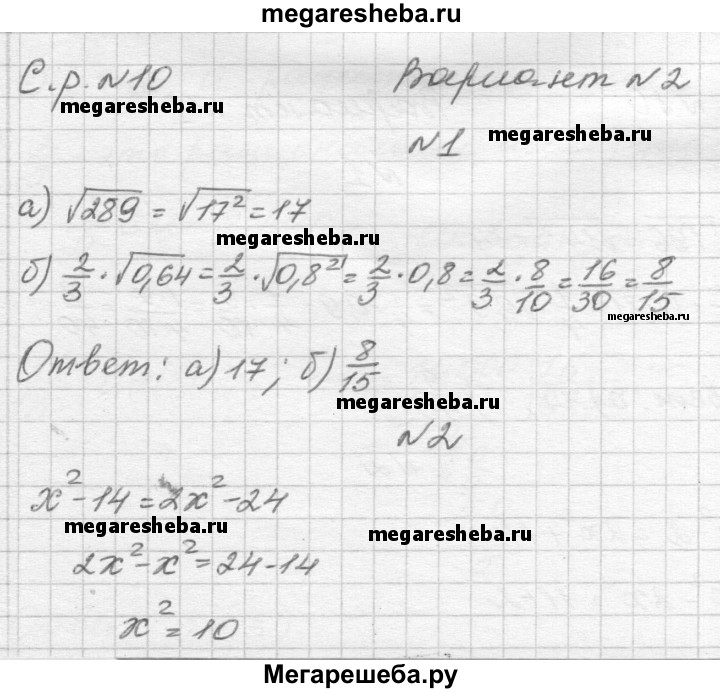 megaresheba.ru
С.р. №10 Вариант №2
megaresheba.ru
№1 megaresheba.ru
а) √289 = √17² = 17
megaresheba.ru
б) 2/3 · √0,64 = 2/3 · √0,8² = 2/3 · 0,8 = 2/3 · 8/10 = 16/30 = 8/15
megaresheba.ru
Ответ: а) 17; б) 8/15
megaresheba.ru
№2
x² - 14 = 2x² - 24
megaresheba.ru megaresheba.ru
2x² - x² = 24 - 14
x² = 10
Мегарешеба.ру